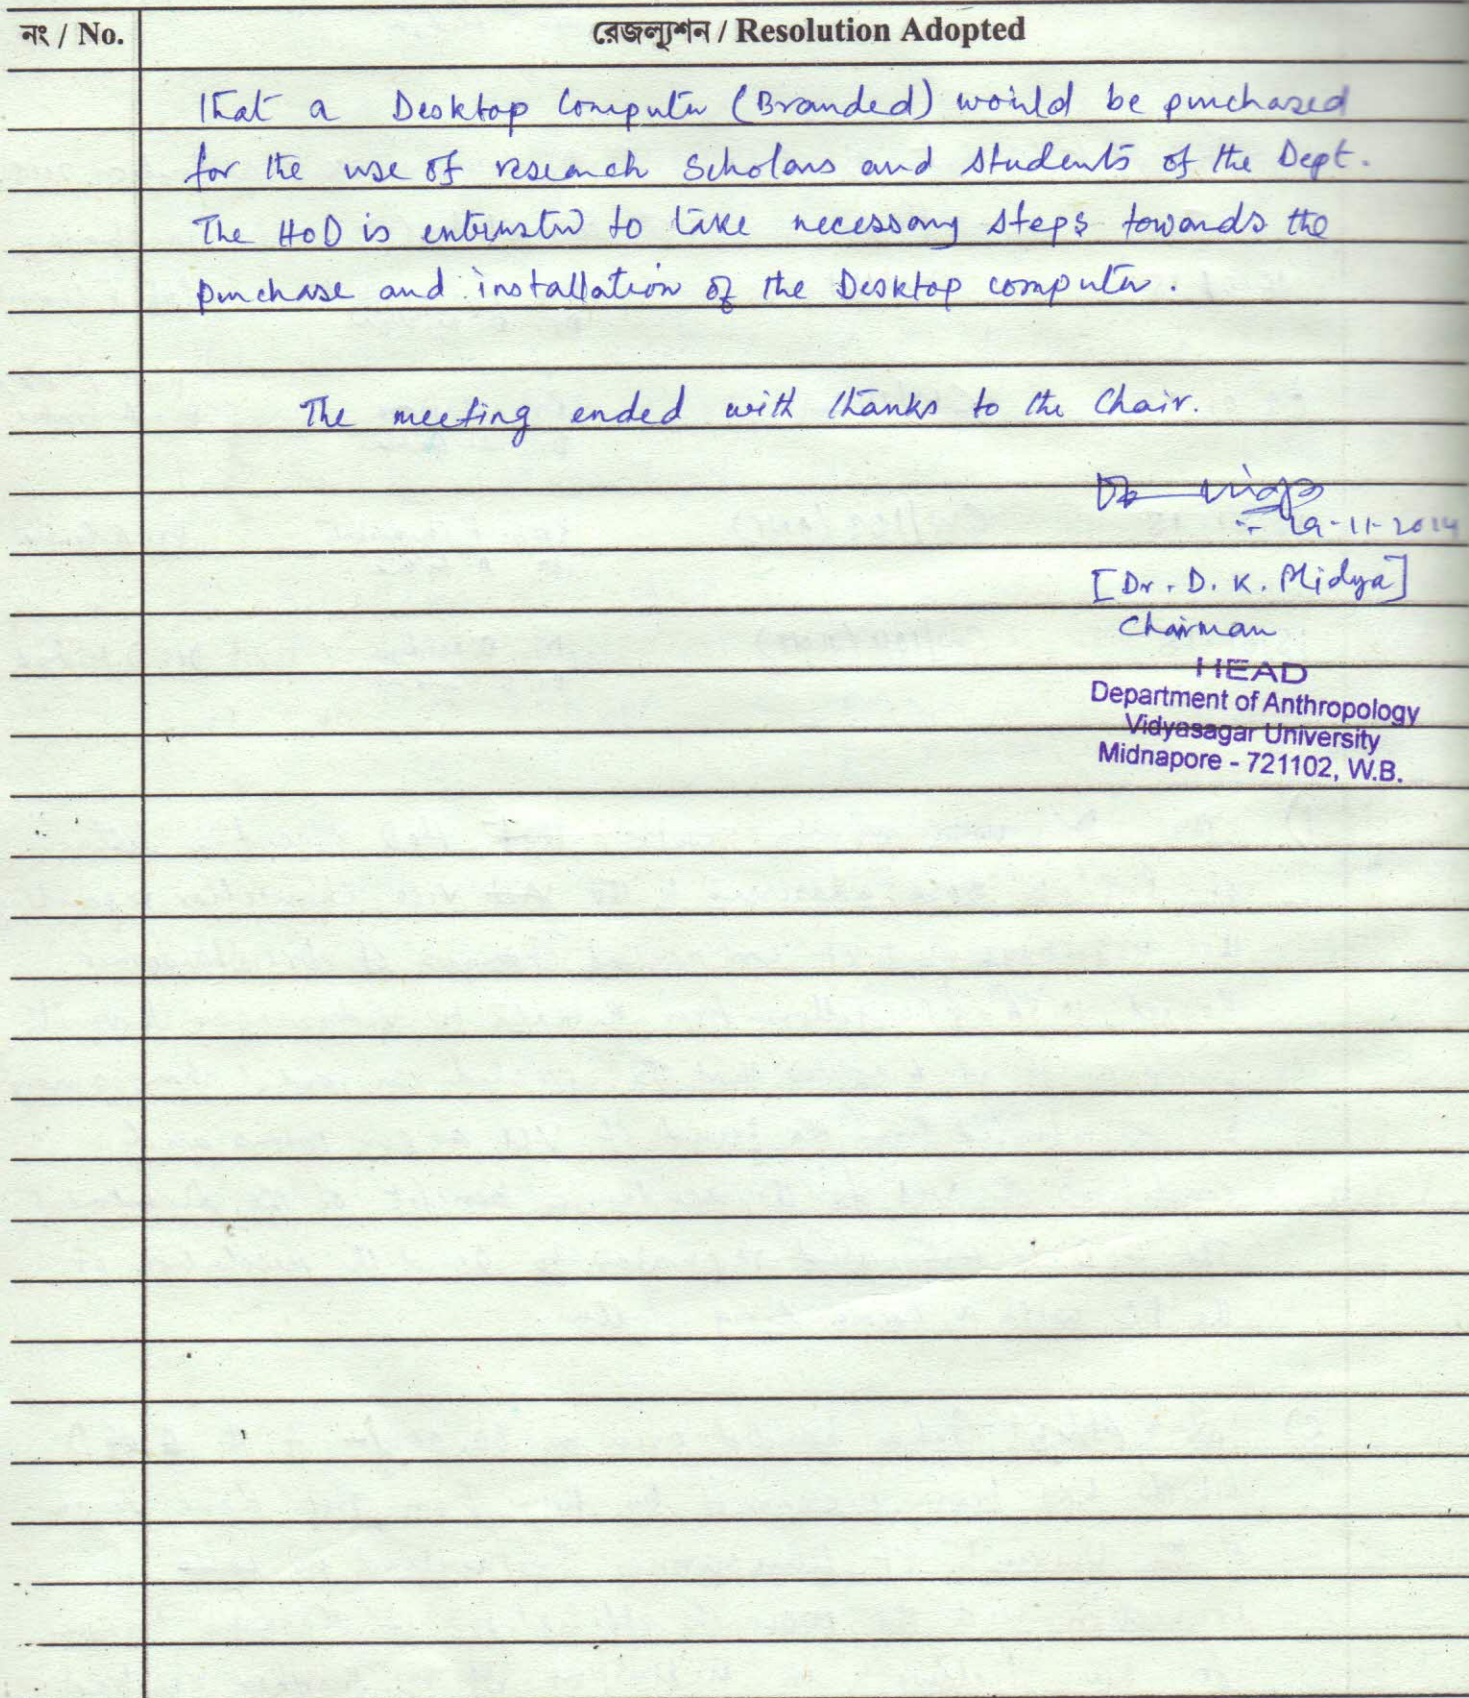 নং / No.
রেজল্যুশন / Resolution Adopted
that a Desktop Computer (Branded) would be purchased
for the use of research Scholars and Students of the Dept.
The HoD is entrusted to take necessary steps towards the
purchase and installation of the Desktop computer.
The meeting ended with thanks to the Chair.
29-11-2014
[Dr. D. K. Midya]
Chairman
HEAD
Department of Anthropology
Vidyasagar University
Midnapore - 721102, W.B.